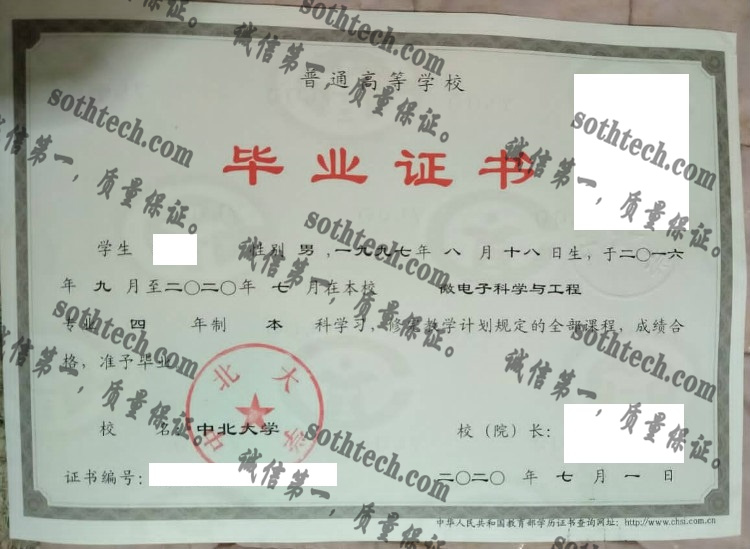 普通高等学校
毕业证书
学生 性别 男 , 一九九七年 八 月 十八 日生, 于二〇一六
年 九 月至二〇二〇年 七 月在本校 微电子科学与工程
专业 四 年制 本 科学习, 修完教学计划规定的全部课程, 成绩合
格, 准予毕业
校 名: 中北大学 校(院)长:
中北大学
证书编号: 二〇二〇 年 七 月 一 日
中华人民共和国教育部学历证书查询网址: http://www.chsi.com.cn
sothtech.com
诚信第一,质量保证。
sothtech.com
诚信第一,质量保证。
sothtech.com
诚信第一,质量保证。
sothtech.com
诚信第一,质量保证。
sothtech.com
诚信第一,质量保证。
sothtech.com
诚信第一,质量保证。
sothtech.com
诚信第一,质量保证。
sothtech.com
诚信第一,质量保证。